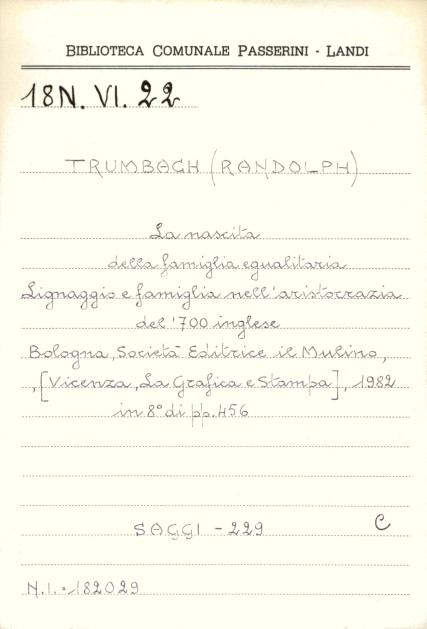 BIBLIOTECA COMUNALE PASSERINI - LANDI
18N. VI. 22
TRUMBACH (RANDOLPH)
La nascita
della famiglia egualitaria
Lignaggio e famiglia nell'aristocrazia
del '700 inglese
Bologna, Società Editrice il Mulino,
,[Vicenza, La Grafica e Stampa], 1982
in 8° di pp. 456
SAGGI - 229 C
N.I. = 182029